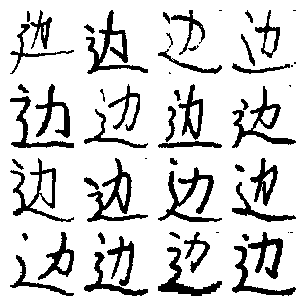 边边边边
边边边边
边边边边
边边边边